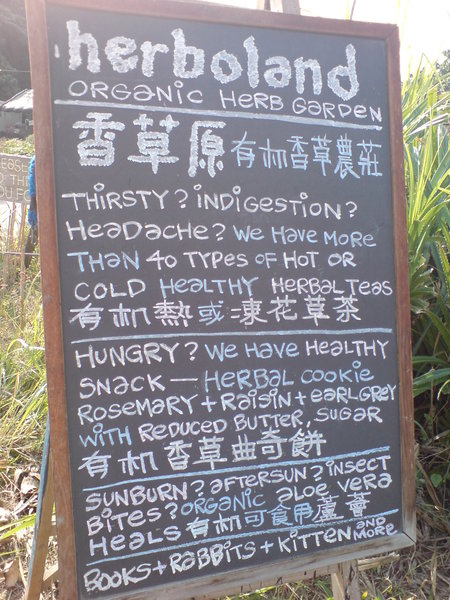 herboland
ORGANIC HERB GARDEN
香草原 有机香草農莊
THIRSTY? INDIGESTION?
HEADACHE? WE HAVE MORE
THAN 40 TYPES OF HOT OR
COLD HEALTHY HERBAL TEAS
有机熱或凍花草茶
HUNGRY? WE HAVE HEALTHY
SNACK — HERBAL COOKIE
ROSEMARY + RAISIN + EARL GREY
WITH REDUCED BUTTER, SUGAR
有机香草曲奇餅
SUNBURN? AFTERSUN? INSECT
BITES? ORGANIC ALOE VERA
HEALS 有机可食用蘆薈
BOOKS + RABBITS + KITTEN AND MORE